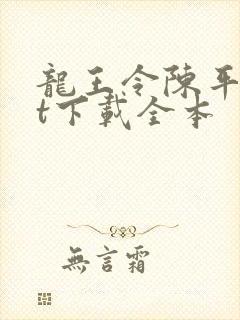 龍王令陳平
t下載全本
無言霜